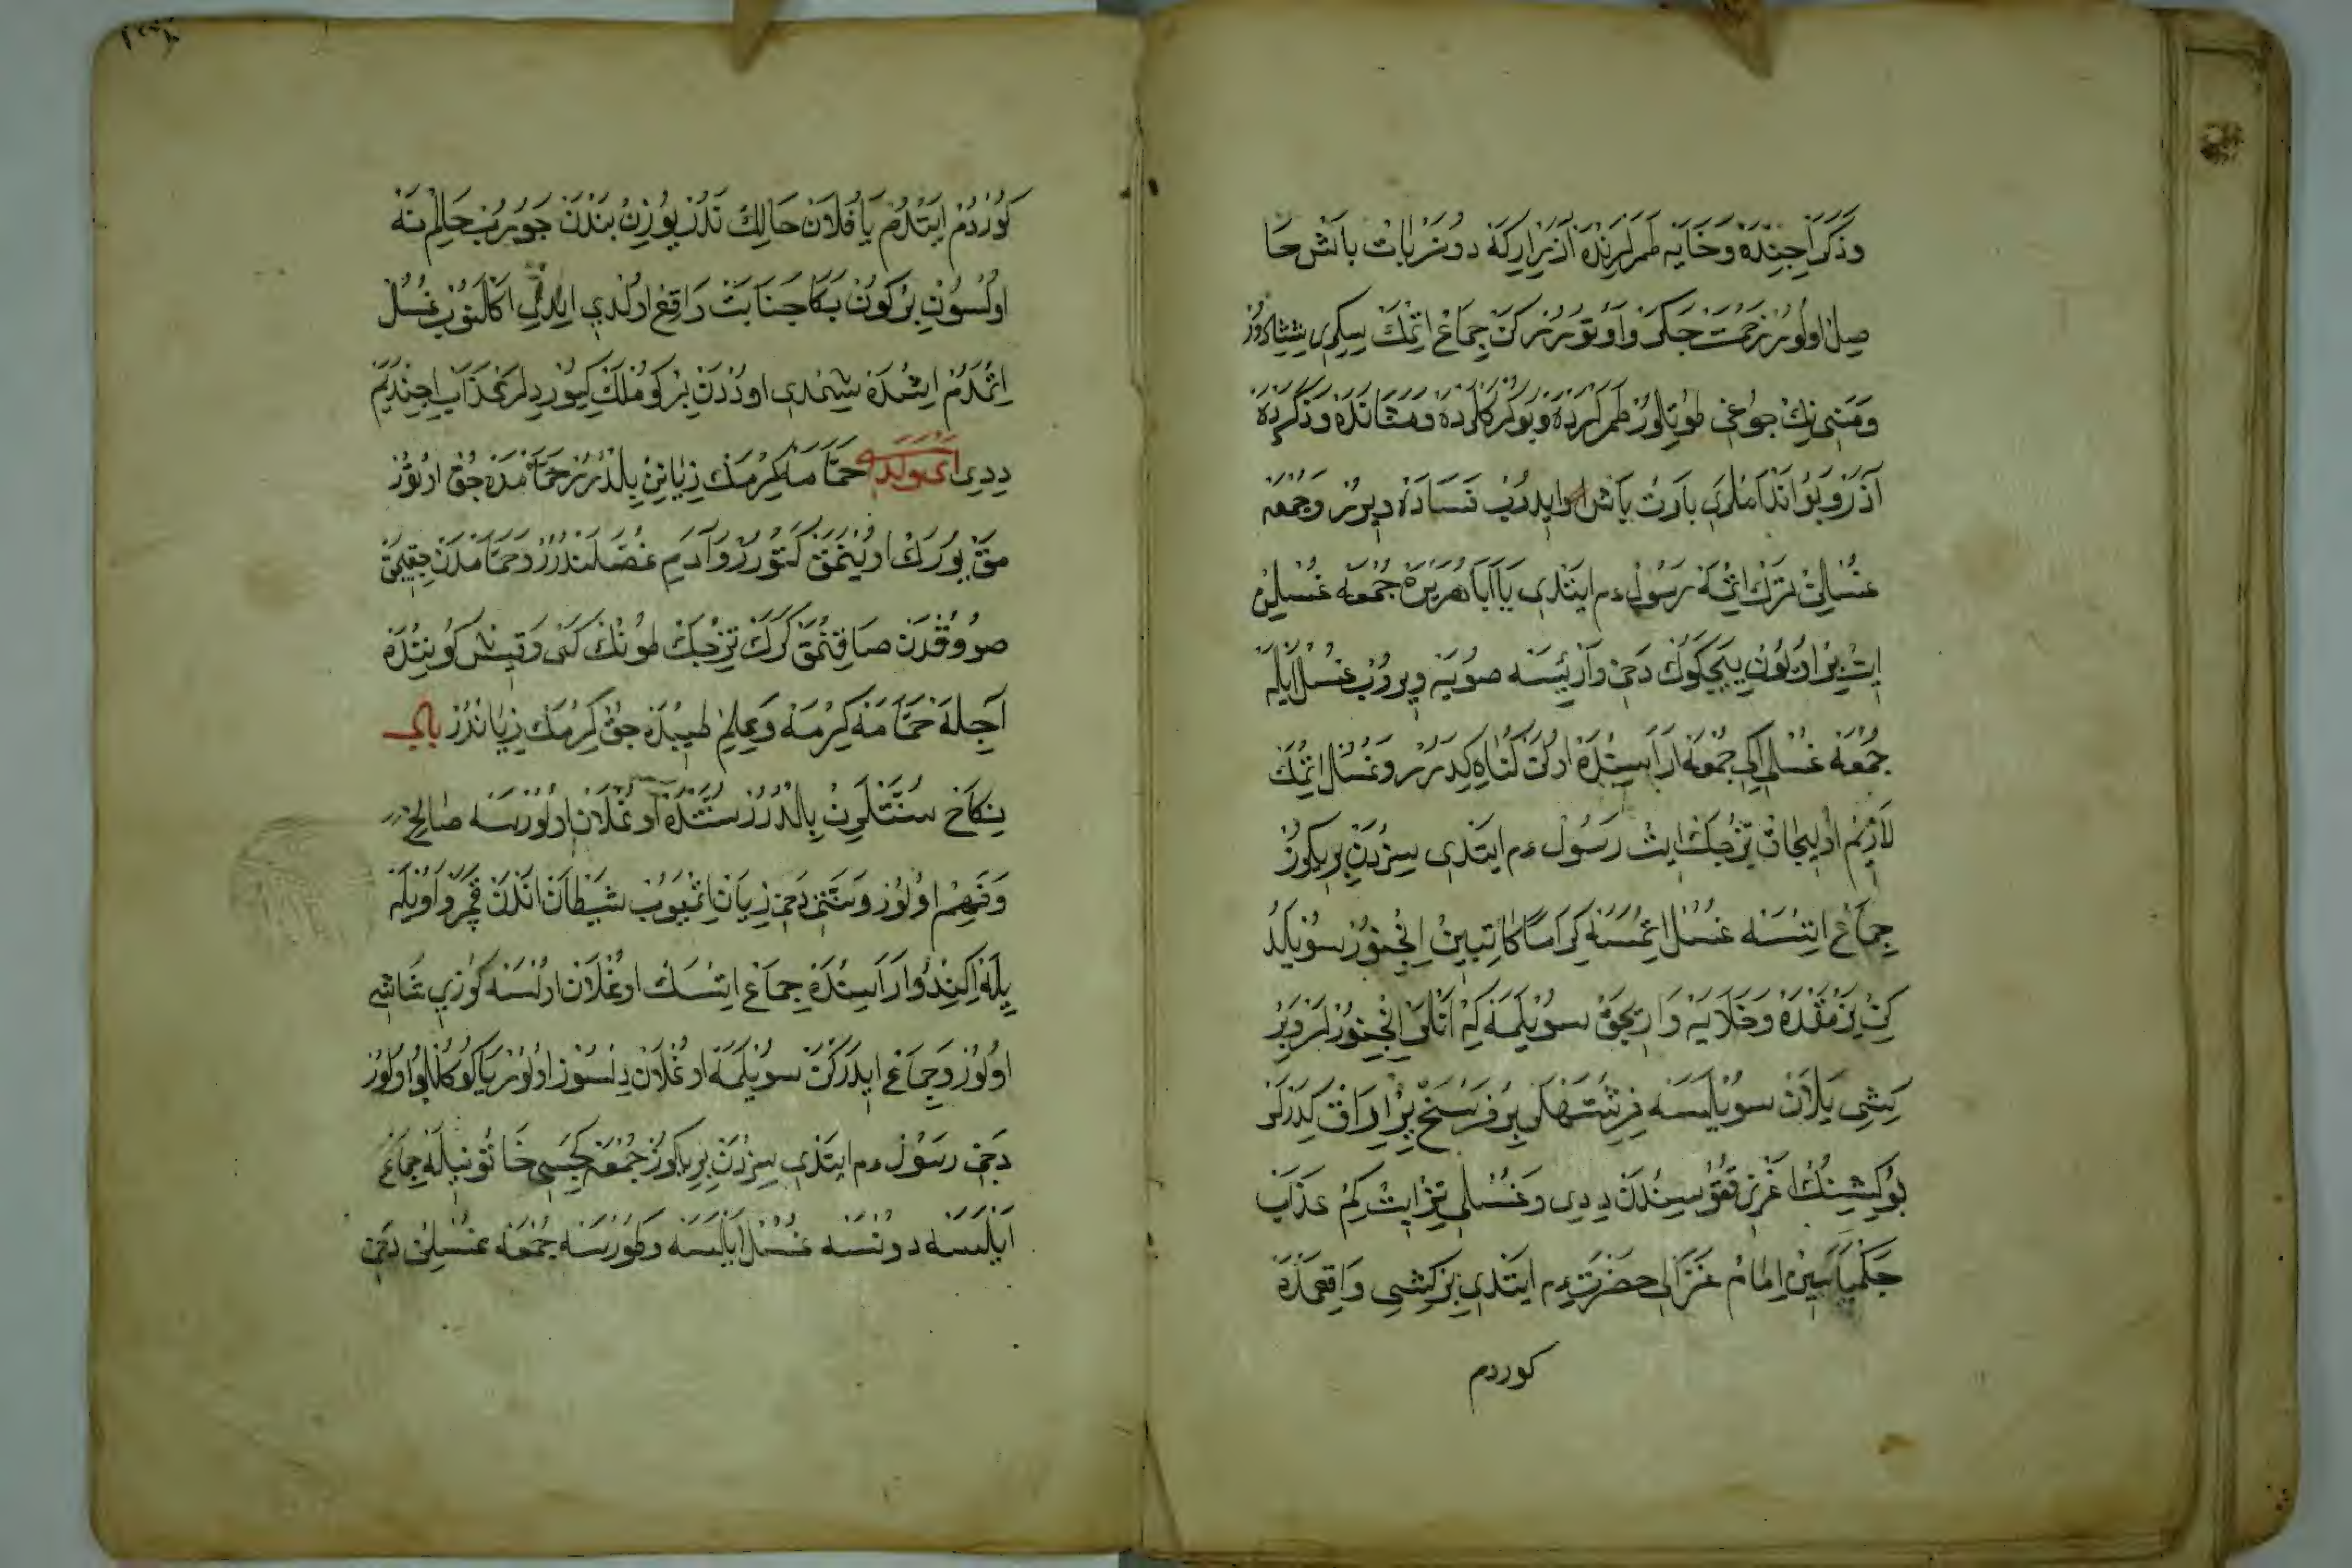 وذكر اجنده وخايه طمرلرنده اذيرارركنه دونربات باش حا
صل اولور زحمت جكر واوتوررركن جماع اتمك سكرى
ومنى نك جوغى طوتلور طمرلرده وبوكركلرده ومثانده وذكرده
اذر وبو اندامليرى بارت باش ايدوب فساده ويرر وجمعه
غسلن ترك اتمه رسول ءم ايتدى يا ابا هريره جمعه غسلن
ات بر اوكون ييجكوك دخى وارئيسه صويه ويروب غسل ايله
جمعه غسلى اكى جمعه اراسنده اولن كناه كيدرر وغسل اتمك
لازم اوليجاق تيزجك ايت رسول ءم ايتدى سزدن بريكوز
جماع ايتسه غسل اتمسه كراما كاتبين انجنور سويلد
كن يزمقده وخلايه واريجق سويلمه كه انلر انجنورلر وبر
كشى يلان سويليسه فرشتهلر بر فرسخ يير ايراق كيدرلر
بو كيشينك اغزى ققوسندن ديدى وغسلى تيز ايت كم عذاب
جكمياسين امام غزالى حضرت ءم ايتدى بر كشى واقعمده
كوردم
كوردم ايتدم يا فلان حالك ندر يوزن بندن جويرب حالم نه
اولسون بر كون بكا جنابت واقع اولدى ايلدى اكلنوب غسل
اتمدم اشمده شمدى اوددن بر كوملك كيوردلر عذاب اجنديم
ددى اى ولد حمامه كرمك زيانن بلدرر حمامده جق اوتور
مق يورك اوينمق كتورر وادمى غضلندرر وحمامدن جقيجق
صووقدن صاقنمق كرك تيزجك طونك كى وقيش كونتده
اجله حمامه كيرمه وعلم طيبده جق كرمك زياندر باب
نكاح سنتلرين بلدرر سنتده اوغلان اولورسه صالح
وفهم اولور وسنتى دخى زيان اتميوب شيطان اندن قجر واويله
يله اكندو اراسنده جماع ايتسك اوغلان اولسه كوزى شاشى
اولور وجماع ايدركن سويلمه اوغلان دلسوز اولور يا كوكللو اولور
دخى رسول ءم ايتدى سزدن بريكوز جمعه كيجسى خاتونيله جماع
ايليسه دونسه غسل ايليسه وطورسه جمعه غسلن دخى